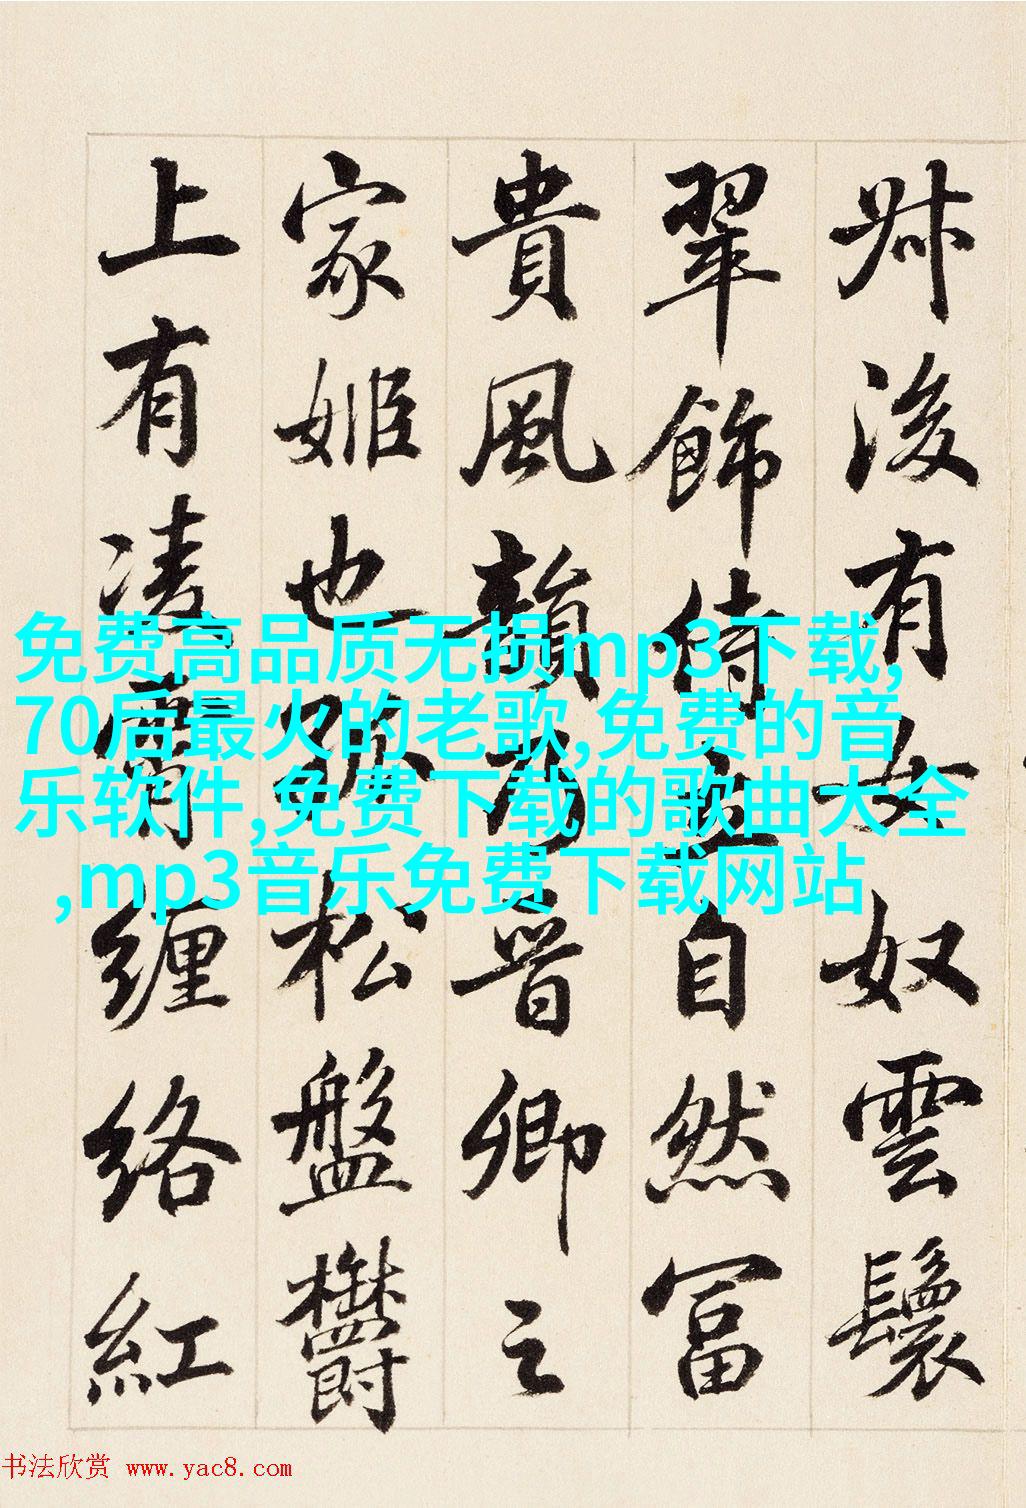 叔後有女奴雲鬟
翠飾侍立自然富
貴風韻乃晉卿之
家姬也孤松盤鬱
上有凌霄纏絡紅
免费高品质无损mp3下载,
70后最火的老歌,免费的音
乐软件,免费下载的歌曲大全
,mp3音乐免费下载网站
书法欣赏 www.yac8.com